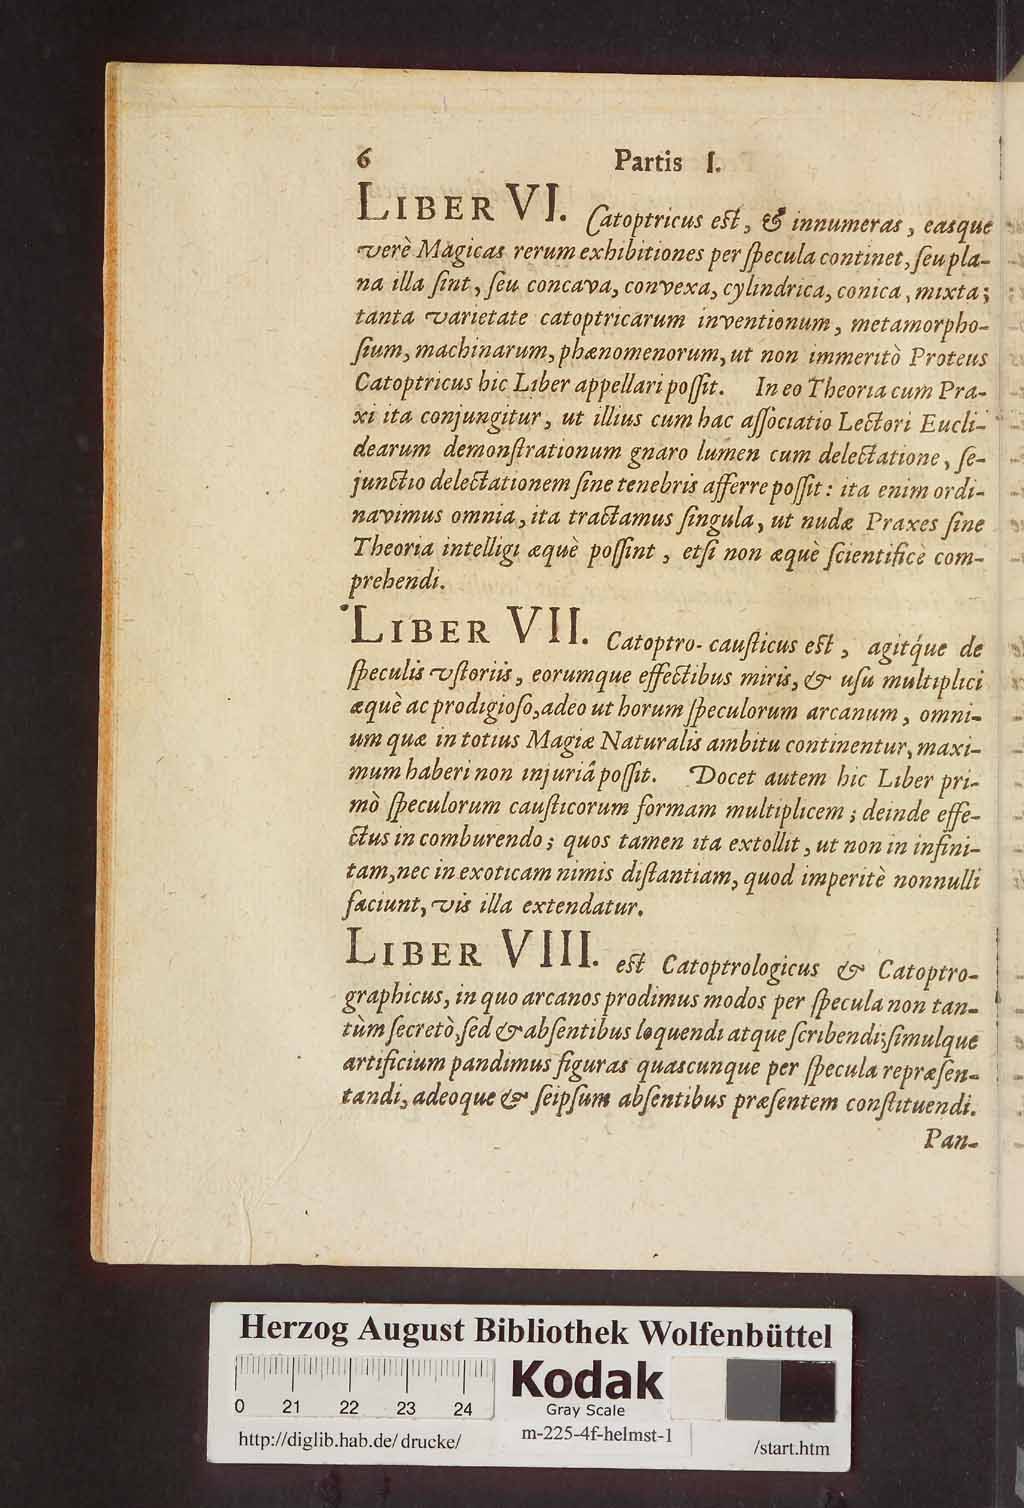 6 Partis I.
LIBER VI. Catoptricus eſt, & innumeras, easque
verè Magicas rerum exhibitiones per ſpecula continet, ſeu pla-
na illa ſint, ſeu concava, convexa, cylindrica, conica, mixta;
tanta varietate catoptricarum inventionum, metamorpho-
ſium, machinarum, phænomenorum, ut non immeritò Proteus
Catoptricus hic Liber appellari poſſit. In eo Theoria cum Pra-
xi ita conjungitur, ut illius cum hac aſſociatio Lectori Eucli-
dearum demonſtrationum gnaro lumen cum delectatione, ſe-
junctio delectationem ſine tenebris afferre poſſit: ita enim ordi-
navimus omnia, ita tractamus ſingula, ut nudæ Praxes ſine
Theoria intelligi æquè poſſint, etſi non æquè ſcientificè com-
prehendi.
LIBER VII. Catoptro-cauſticus eſt, agitq́ue de
ſpeculis vſtoriis, eorumque effectibus miris, & uſu multiplici
æquè ac prodigioſo, adeo ut horum ſpeculorum arcanum, omni-
um quæ in totius Magiæ Naturalis ambitu continentur, maxi-
mum haberi non injuriâ poſſit. Docet autem hic Liber pri-
mò ſpeculorum cauſticorum formam multiplicem; deinde effe-
ctus in comburendo; quos tamen ita extollit, ut non in infini-
tam, nec in exoticam nimis diſtantiam, quod imperitè nonnulli
faciunt, vis illa extendatur.
LIBER VIII. eſt Catoptrologicus & Catoptro-
graphicus, in quo arcanos prodimus modos per ſpecula non tan-
tùm ſecretò, ſed & abſentibus loquendi atque ſcribendi; ſimulque
artificium pandimus figuras quascunque per ſpecula repræſen-
tandi, adeoque & ſeipſum abſentibus præſentem conſtituendi.
Pan-
Herzog August Bibliothek Wolfenbüttel
0 21 22 23 24
Kodak
Gray Scale
http://diglib.hab.de/drucke/ m-225-4f-helmst-1 /start.htm